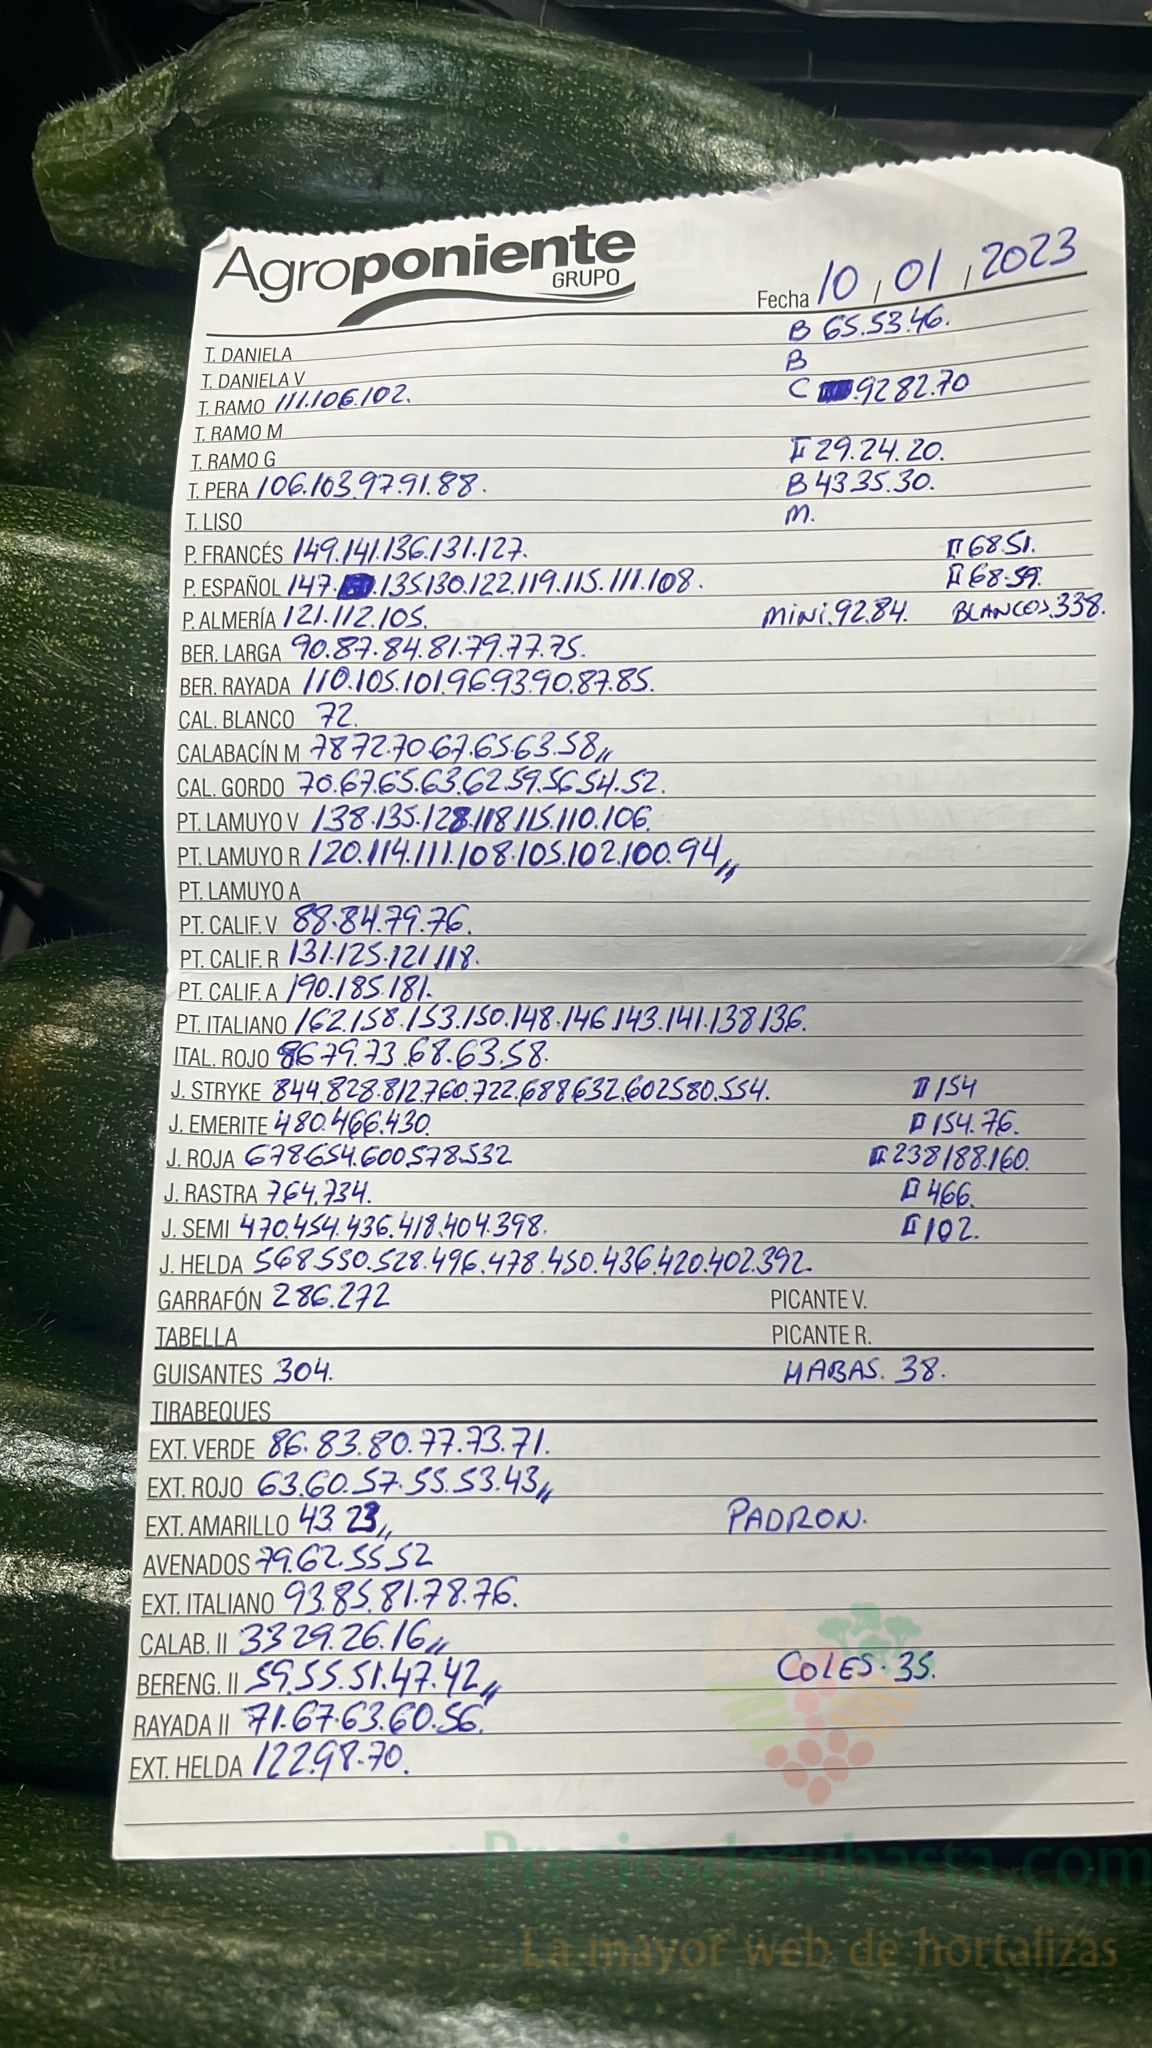 Agroponiente
GRUPO
Fecha 10, 01, 2023
T. DANELA B 65.53.46.
T. DANIELA V B
T. RAMO 111.106.102. C .92 82.70
T. RAMO M
T. RAMO G II 29.24.20.
T. PERA 106.103.97.91.88. B 43 35.30.
T. LISO M.
P. FRANCÉS 149.141.136.131.127. II 68.51.
P. ESPAÑOL 147. .135.130.122.119.115.111.108. II 68.59.
P. ALMERÍA 121.112.105. MINI.92.84. BLANCOS.338.
BER. LARGA 90.87.84.81.79.77.75.
BER. RAYADA 110.105.101.96.93.90.87.85.
CAL. BLANCO 72.
CALABACÍN M 78 72.70.67.65.63.58,,
CAL. GORDO 70.67.65.63.62.59.56.54.52.
PT. LAMUYO V 138.135.128.118.115.110.106.
PT. LAMUYO R 120.114.111.108.105.102.100.94,,
PT. LAMUYO A
PT. CALIF. V 88.84.79.76.
PT. CALIF. R 131.125.121.118.
PT. CALIF. A 190.185.181.
PT. ITALIANO 162.158.153.150.148.146.143.141.138.136.
ITAL. ROJO 86 79.73.68.63.58.
J. STRYKE 844.828.812.760.722.688 632.602 580.554. II 154
J. EMERITE 480.466.430. II 154.76.
J. ROJA 678 654.600.578.532 II 238 188.160.
J. RASTRA 764.734. II 466.
J. SEMI 470.454.436.418.404.398. II 102.
J. HELDA 568.550.528.496.478.450.436.420.402.392.
GARRAFÓN 286.272 PICANTE V.
TABELLA PICANTE R.
GUISANTES 304. HABAS. 38.
TIRABEQUES
EXT. VERDE 86.83.80.77.73.71.
EXT. ROJO 63.60.57.55.53.43,,
EXT. AMARILLO 43. 23,, PADRON.
AVENADOS 79.62.55.52
EXT. ITALIANO 93.85.81.78.76.
CALAB. II 33 29.26.16,,
BERENG. II 59.55.51.47.42,, COLES. 35.
RAYADA II 71.67.63.60.56.
EXT. HELDA 122.98.70.
Preciosdesubasta.com
La mayor web de hortalizas